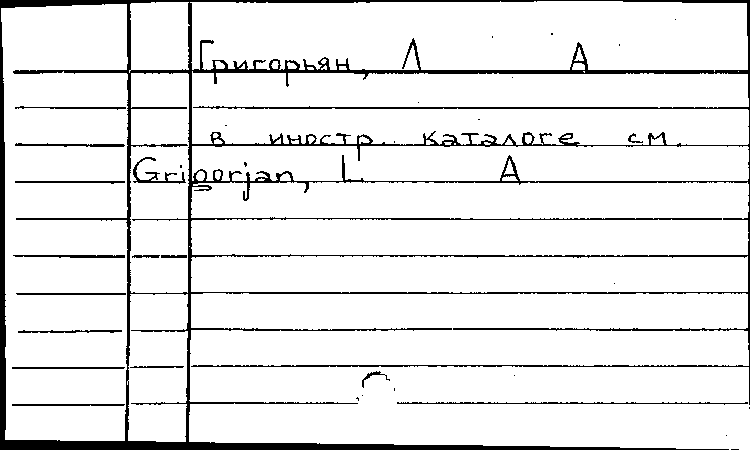 Григорьян, Л А
в иностр. каталоге см.
Grigorjan, L A